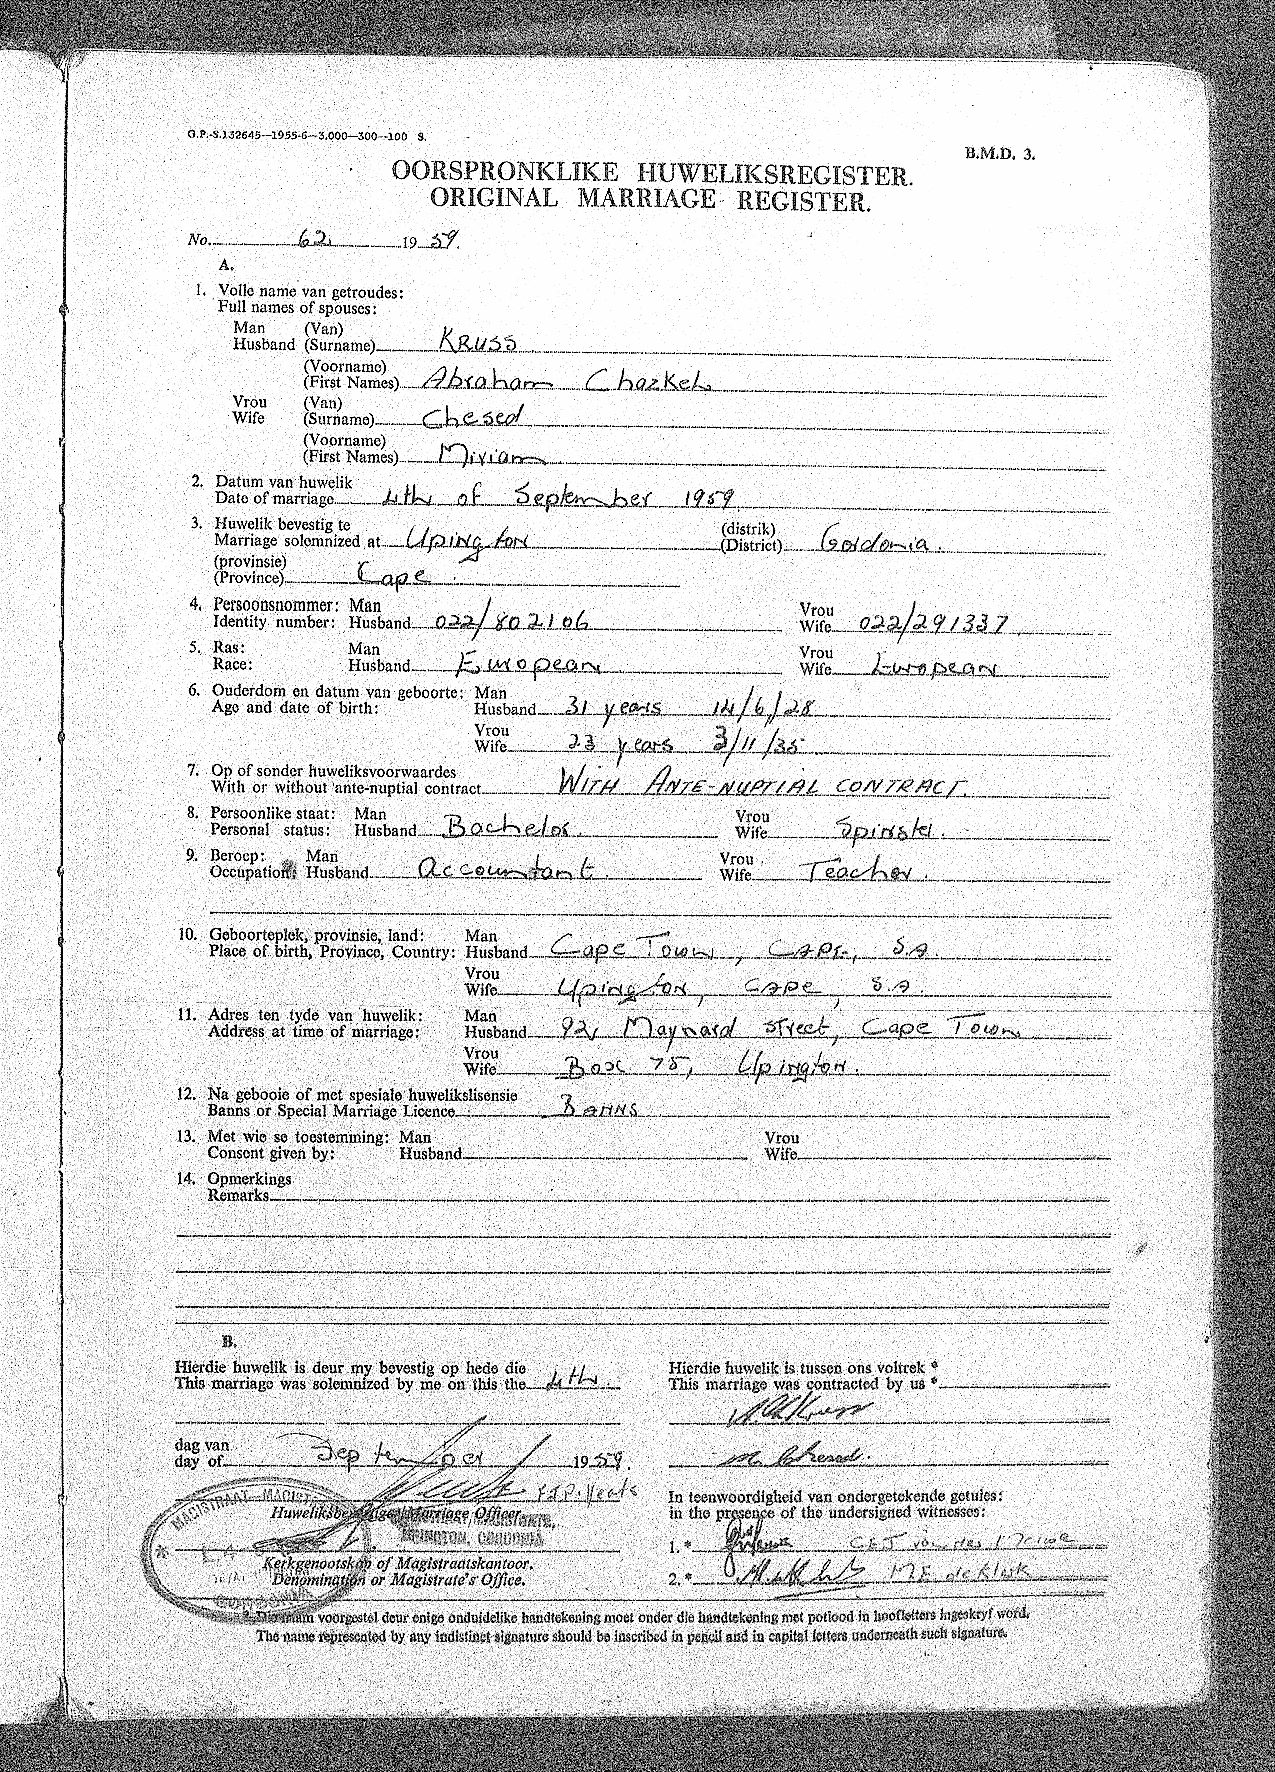 G.P.-S.132645—1955-6—3,000—300—100 S.
B.M.D. 3.
OORSPRONKLIKE HUWELIKSREGISTER.
ORIGINAL MARRIAGE REGISTER.
No. 62 1959.
A.
1. Volle name van getroudes:
Full names of spouses:
Man (Van)
Husband (Surname) KRUSS
(Voorname)
(First Names) Abraham Chazkel
Vrou (Van)
Wife (Surname) Chesed
(Voorname)
(First Names) Miriam
2. Datum van huwelik
Date of marriage 4th of September 1959
3. Huwelik bevestig te (distrik)
Marriage solemnized at Upington (District) Gordonia.
(provinsie)
(Province) Cape.
4. Persoonsnommer: Man Vrou
Identity number: Husband 022/802106 Wife 022/291337
5. Ras: Man Vrou
Race: Husband European Wife European
6. Ouderdom en datum van geboorte: Man
Age and date of birth: Husband 31 years 14/6/28
Vrou
Wife 23 years 3/11/35
7. Op of sonder huweliksvoorwaardes
With or without ante-nuptial contract WITH ANTE-NUPTIAL CONTRACT.
8. Persoonlike staat: Man Vrou
Personal status: Husband Bachelor. Wife Spinster.
9. Beroep: Man Vrou
Occupation: Husband Accountant. Wife Teacher.
10. Geboorteplek, provinsie, land: Man
Place of birth, Province, Country: Husband Cape Town, CAPE, S.A.
Vrou
Wife Upington, CAPE, S.A.
11. Adres ten tyde van huwelik: Man
Address at time of marriage: Husband 92, Maynard Street, Cape Town
Vrou
Wife Box 75, Upington.
12. Na gebooie of met spesiale huwelikslisensie
Banns or Special Marriage Licence Banns
13. Met wie se toestemming: Man Vrou
Consent given by: Husband Wife
14. Opmerkings
Remarks
B.
Hierdie huwelik is deur my bevestig op hede die
This marriage was solemnized by me on this the 4th.
dag van
day of September 1959.
Huweliksbevestiger/Marriage Officer.
MAGISTRATE,
UPINGTON, GORDONIA
Kerkgenootskap of Magistraatskantoor.
Denomination or Magistrate's Office.
MAGISTRAAT
GORDONIA
Hierdie huwelik is tussen ons voltrek *
This marriage was contracted by us *
M. Chesed.
In teenwoordigheid van ondergetekende getuies:
in the presence of the undersigned witnesses:
1.*
2.* de Klerk
* Die naam voorgestel deur enige onduidelike handtekening moet onder die handtekening met potlood in hoofletters ingeskryf word.
The name represented by any indistinct signature should be inscribed in pencil and in capital letters underneath such signature.